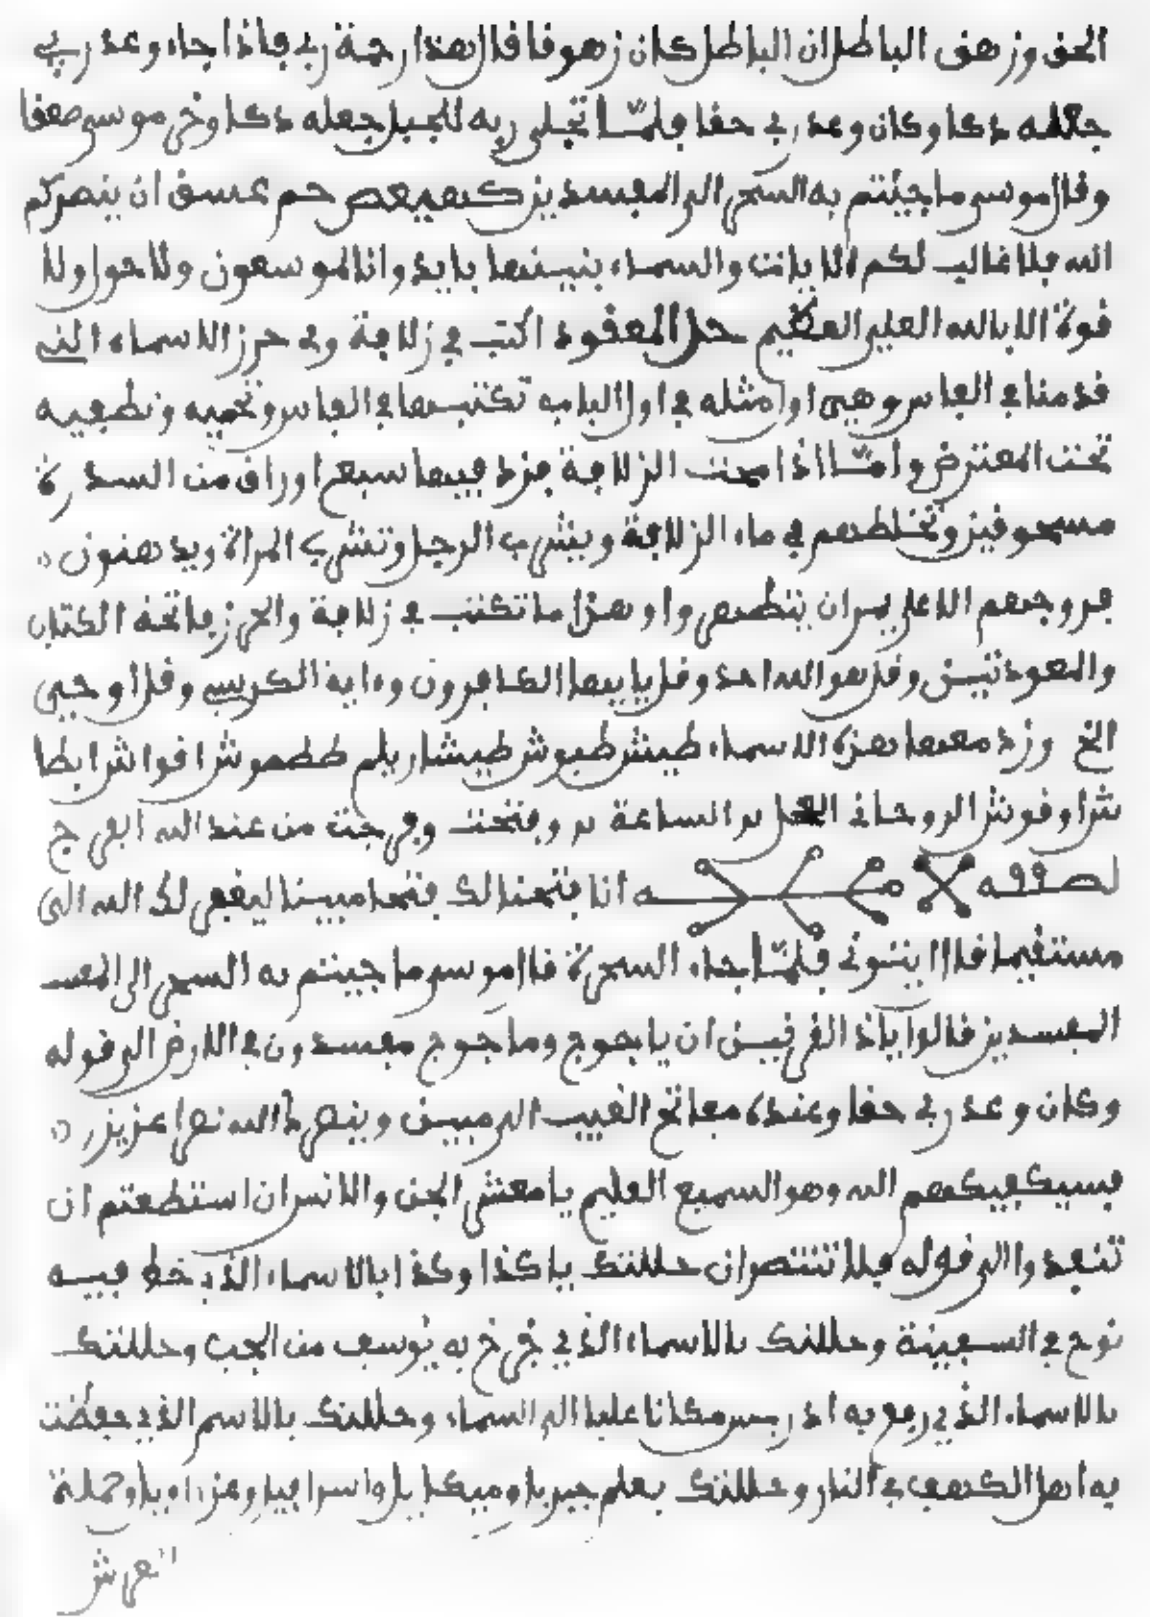 الحق وزهق الباطل ان الباطل كان زهوقا قال هذا رحمة ربي فاذا جاء وعد ربي
جعله دكا وكان وعد ربي حقا فلمّا تجلى ربه للجبل جعله دكا وخر موسى صعقا
وقال موسى ما جيئتم به السحر الى المفسدين كهيعص حم عسق ان ينصركم
الله فلا غالب لكم الايات والسماء بنينها بايد وانا لموسعون ولا حول ولا
قوة الا بالله العلي العظيم حل المعقود اكتب في زلافة وفي حرز الاسماء التي
قدمنا في الفاس وهي اول مثله في اول الباب تكتبها في الفاس وتحميه وتطفيه
تحت المعترض وامّا اذا محت الزلافة فزد فيها سبع اوراق من السدرة
مسحوقين وتخلطهم في ماء الزلافة ويشرب الرجل وتشرب المراة ويدهنون
فروجهم الاعلى يمران وهذا ما تكتب في زلافة والحرز فاتحة الكتاب
والمعوذتين وقل هو الله احد وقل يا ايها الكافرون وءاية الكرسي وقل اوحي
الخ وزد معها هذه الاسماء طيش طبوش طيشار يلم ططموش اقواش ابطا
ش اوقوش الروحاني الساعة وفتحت وفرجت من عند الله افرج
لصققه انا فتحنا لك فتحا مبينا ليغفر لك الله الى
مستقيما قال ايتوني فلمّا جاء السحرة قال موسى ما جيتم به السحر الى المفسد
المفسدين قالوا ياذ القرنين ان ياجوج وماجوج مفسدون في الارض الى قوله
وكان وعد ربي حقا وعنده مفاتح الغيب الى مبين وينصرك الله نصرا عزيزا
فسيكفيكهم الله وهو السميع العليم يا معشر الجن والانس ان استطعتم ان
تنفذوا الى قوله فلا تنتصران حللتك يا كذا وكذا بالاسماء الذي خط فيه
نوح في السفينة وحللتك بالاسماء الذي خرج به يوسف من الجب وحللتك
بالاسماء الذي رفع به ادريس مكانا عليا الى السماء وحللتك بالاسم الذي حفظت
به اهل الكهف في النار وحللتك بعلم جبريل وميكايل واسرافيل وعزراويل وحملة
العرش